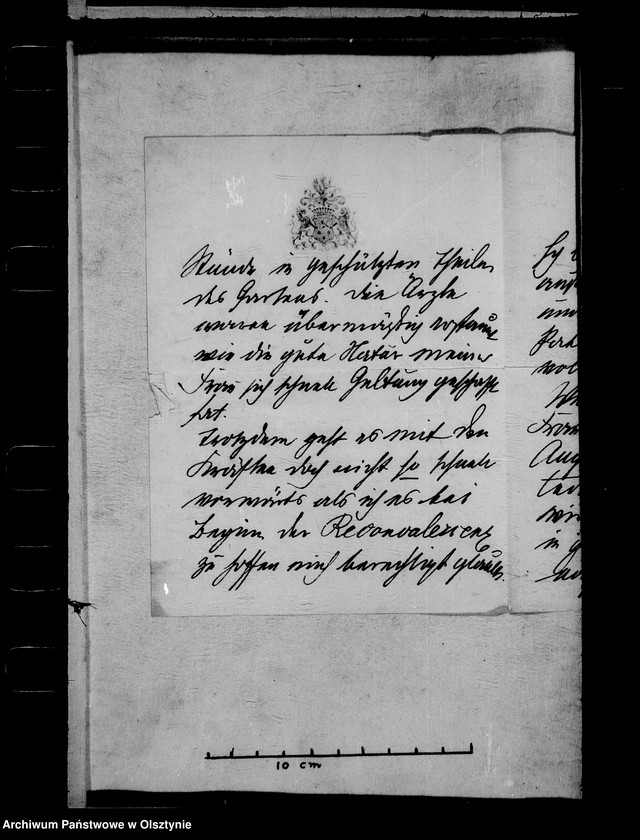 Stunde in geschützten Theilen
des Gartens. Die Ärzte
waren übermäßig erstaunt
wie die gute Natur meiner
Frau sich schnell Geltung geschafft
hat.
Trotzdem geht es mit den
Kräften doch nicht so schnell
vorwärts als ich es bei
Beginn der Reconvalescenz
zu hoffen mich berechtigt glaubte
10 cm
Archiwum Państwowe w Olsztynie